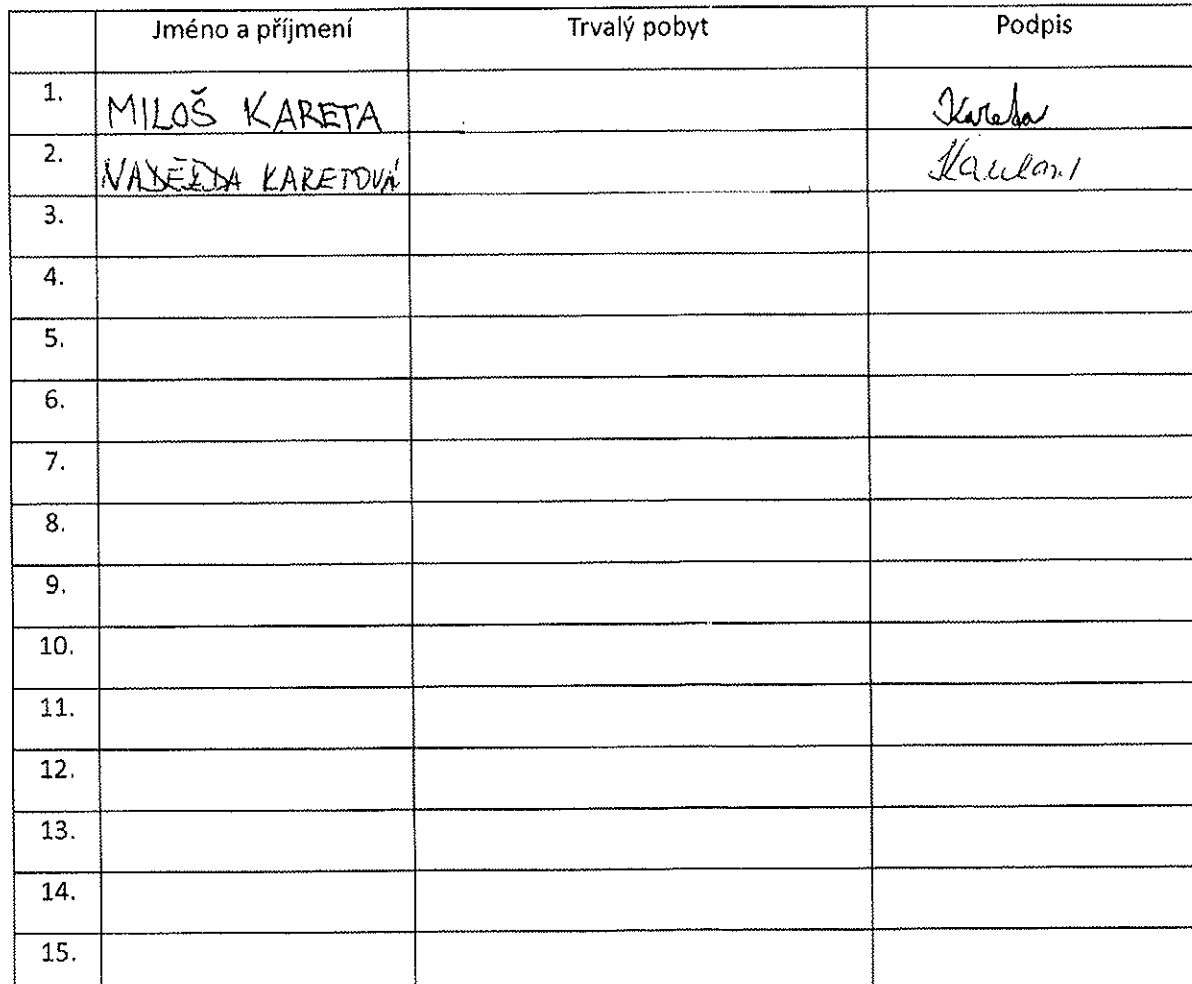 Jméno a příjmení Trvalý pobyt Podpis
1. MILOŠ KARETA Kareta
2. NADĚŽDA KARETOVÁ
3.
4.
5.
6.
7.
8.
9.
10.
11.
12.
13.
14.
15.